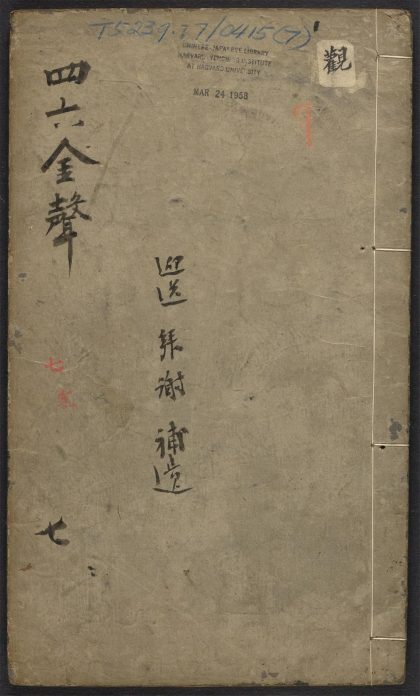 T5239.17/0415(7)
CHINESE-JAPANESE LIBRARY
HARVARD-YENCHING INSTITUTE
AT HARVARD UNIVERSITY
MAR 24 1958
觀
四六金聲
迎送拜謝補遺
七
七